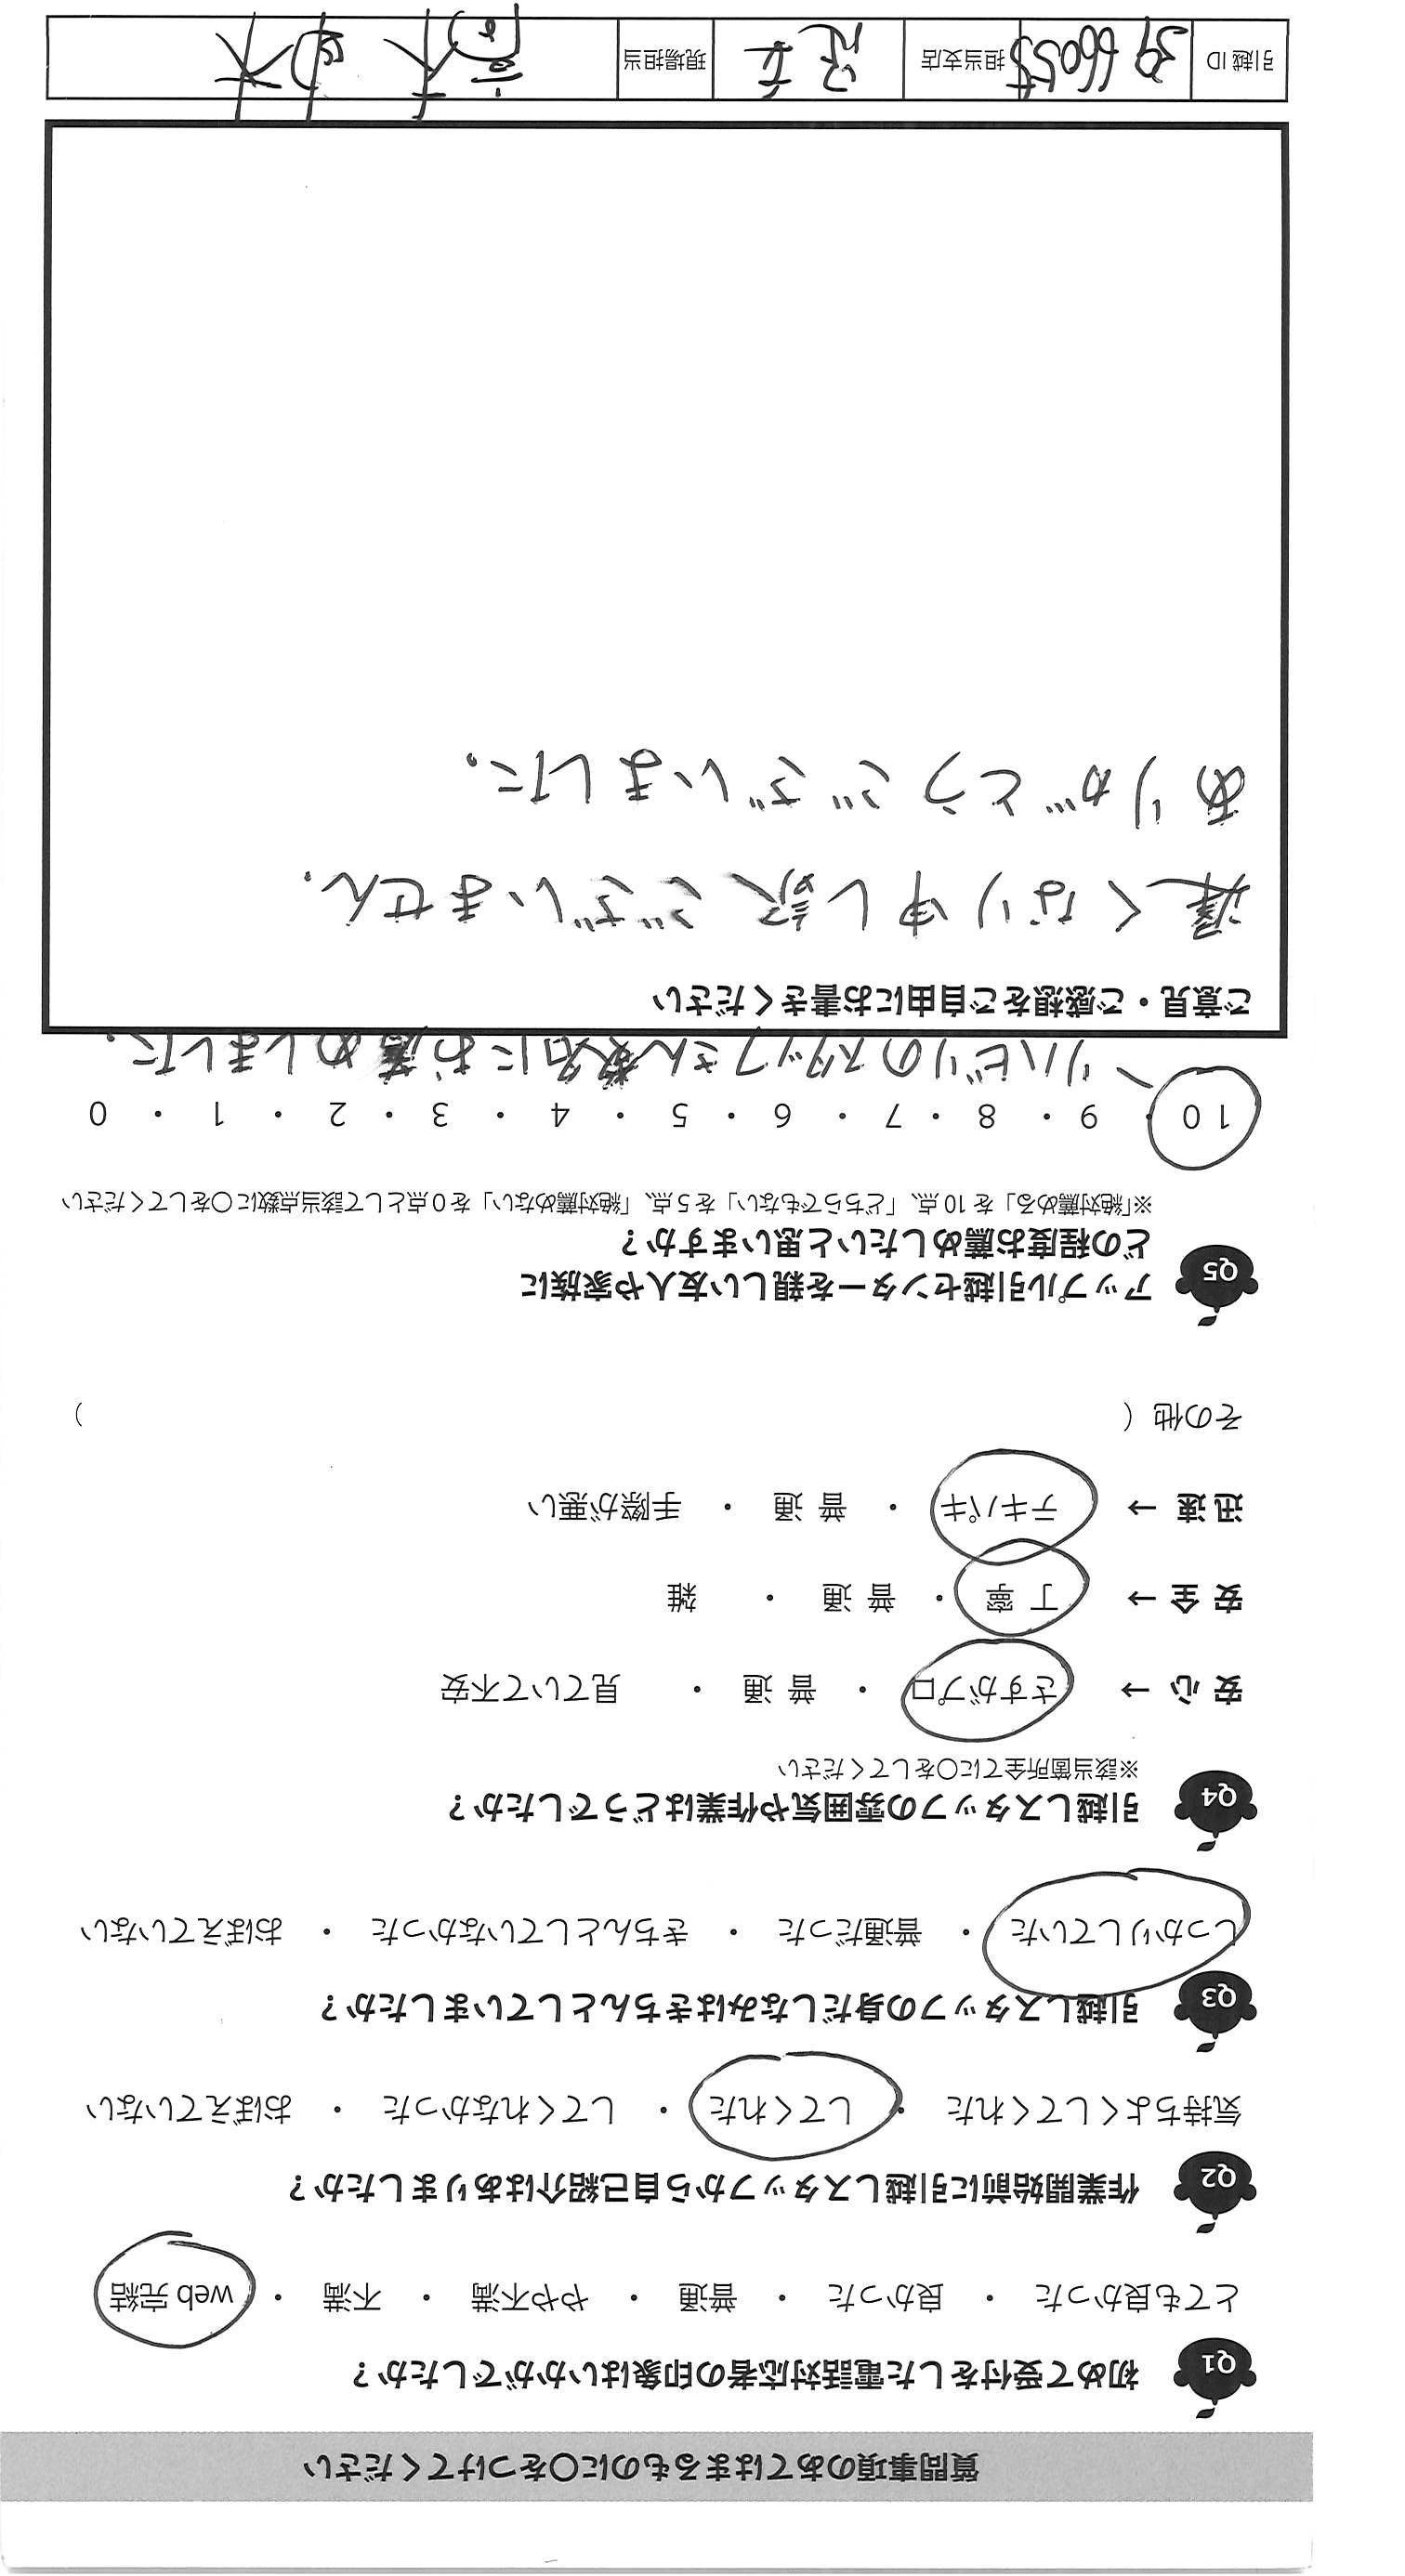 質問事項のあてはまるものに〇をつけてください
Q1 初めて受付をした電話対応者の印象はいかがでしたか？
とても良かった ・ 良かった ・ 普通 ・ やや不満 ・ 不満 ・ web 完結
Q2 作業開始前に引越しスタッフから自己紹介はありましたか？
気持ちよくしてくれた ・ してくれた ・ してくれなかった ・ おぼえていない
Q3 引越しスタッフの身だしなみはきちんとしていましたか？
しっかりしていた ・ 普通だった ・ きちんとしていなかった ・ おぼえていない
Q4 引越しスタッフの雰囲気や作業はどうでしたか？
※該当箇所全てに〇をしてください
安 心 → さすがプロ ・ 普 通 ・ 見ていて不安
安 全 → 丁 寧 ・ 普 通 ・ 雑
迅 速 → テキパキ ・ 普 通 ・ 手際が悪い
その他 （ ）
Q5 アップル引越センターを親しい友人や家族に
どの程度お薦めしたいと思いますか？
※「絶対薦める」を 10 点、「どちらでもない」を 5 点、「絶対薦めない」を 0 点として該当点数に〇をしてください
10 ・ 9 ・ 8 ・ 7 ・ 6 ・ 5 ・ 4 ・ 3 ・ 2 ・ 1 ・ 0
リハビリのスタッフさん数名にお薦めしました。
ご意見・ご感想をご自由にお書きください
遅くなり申し訳ございません.
ありがとうございました。
引越 ID 担当支店 現場担当 高木